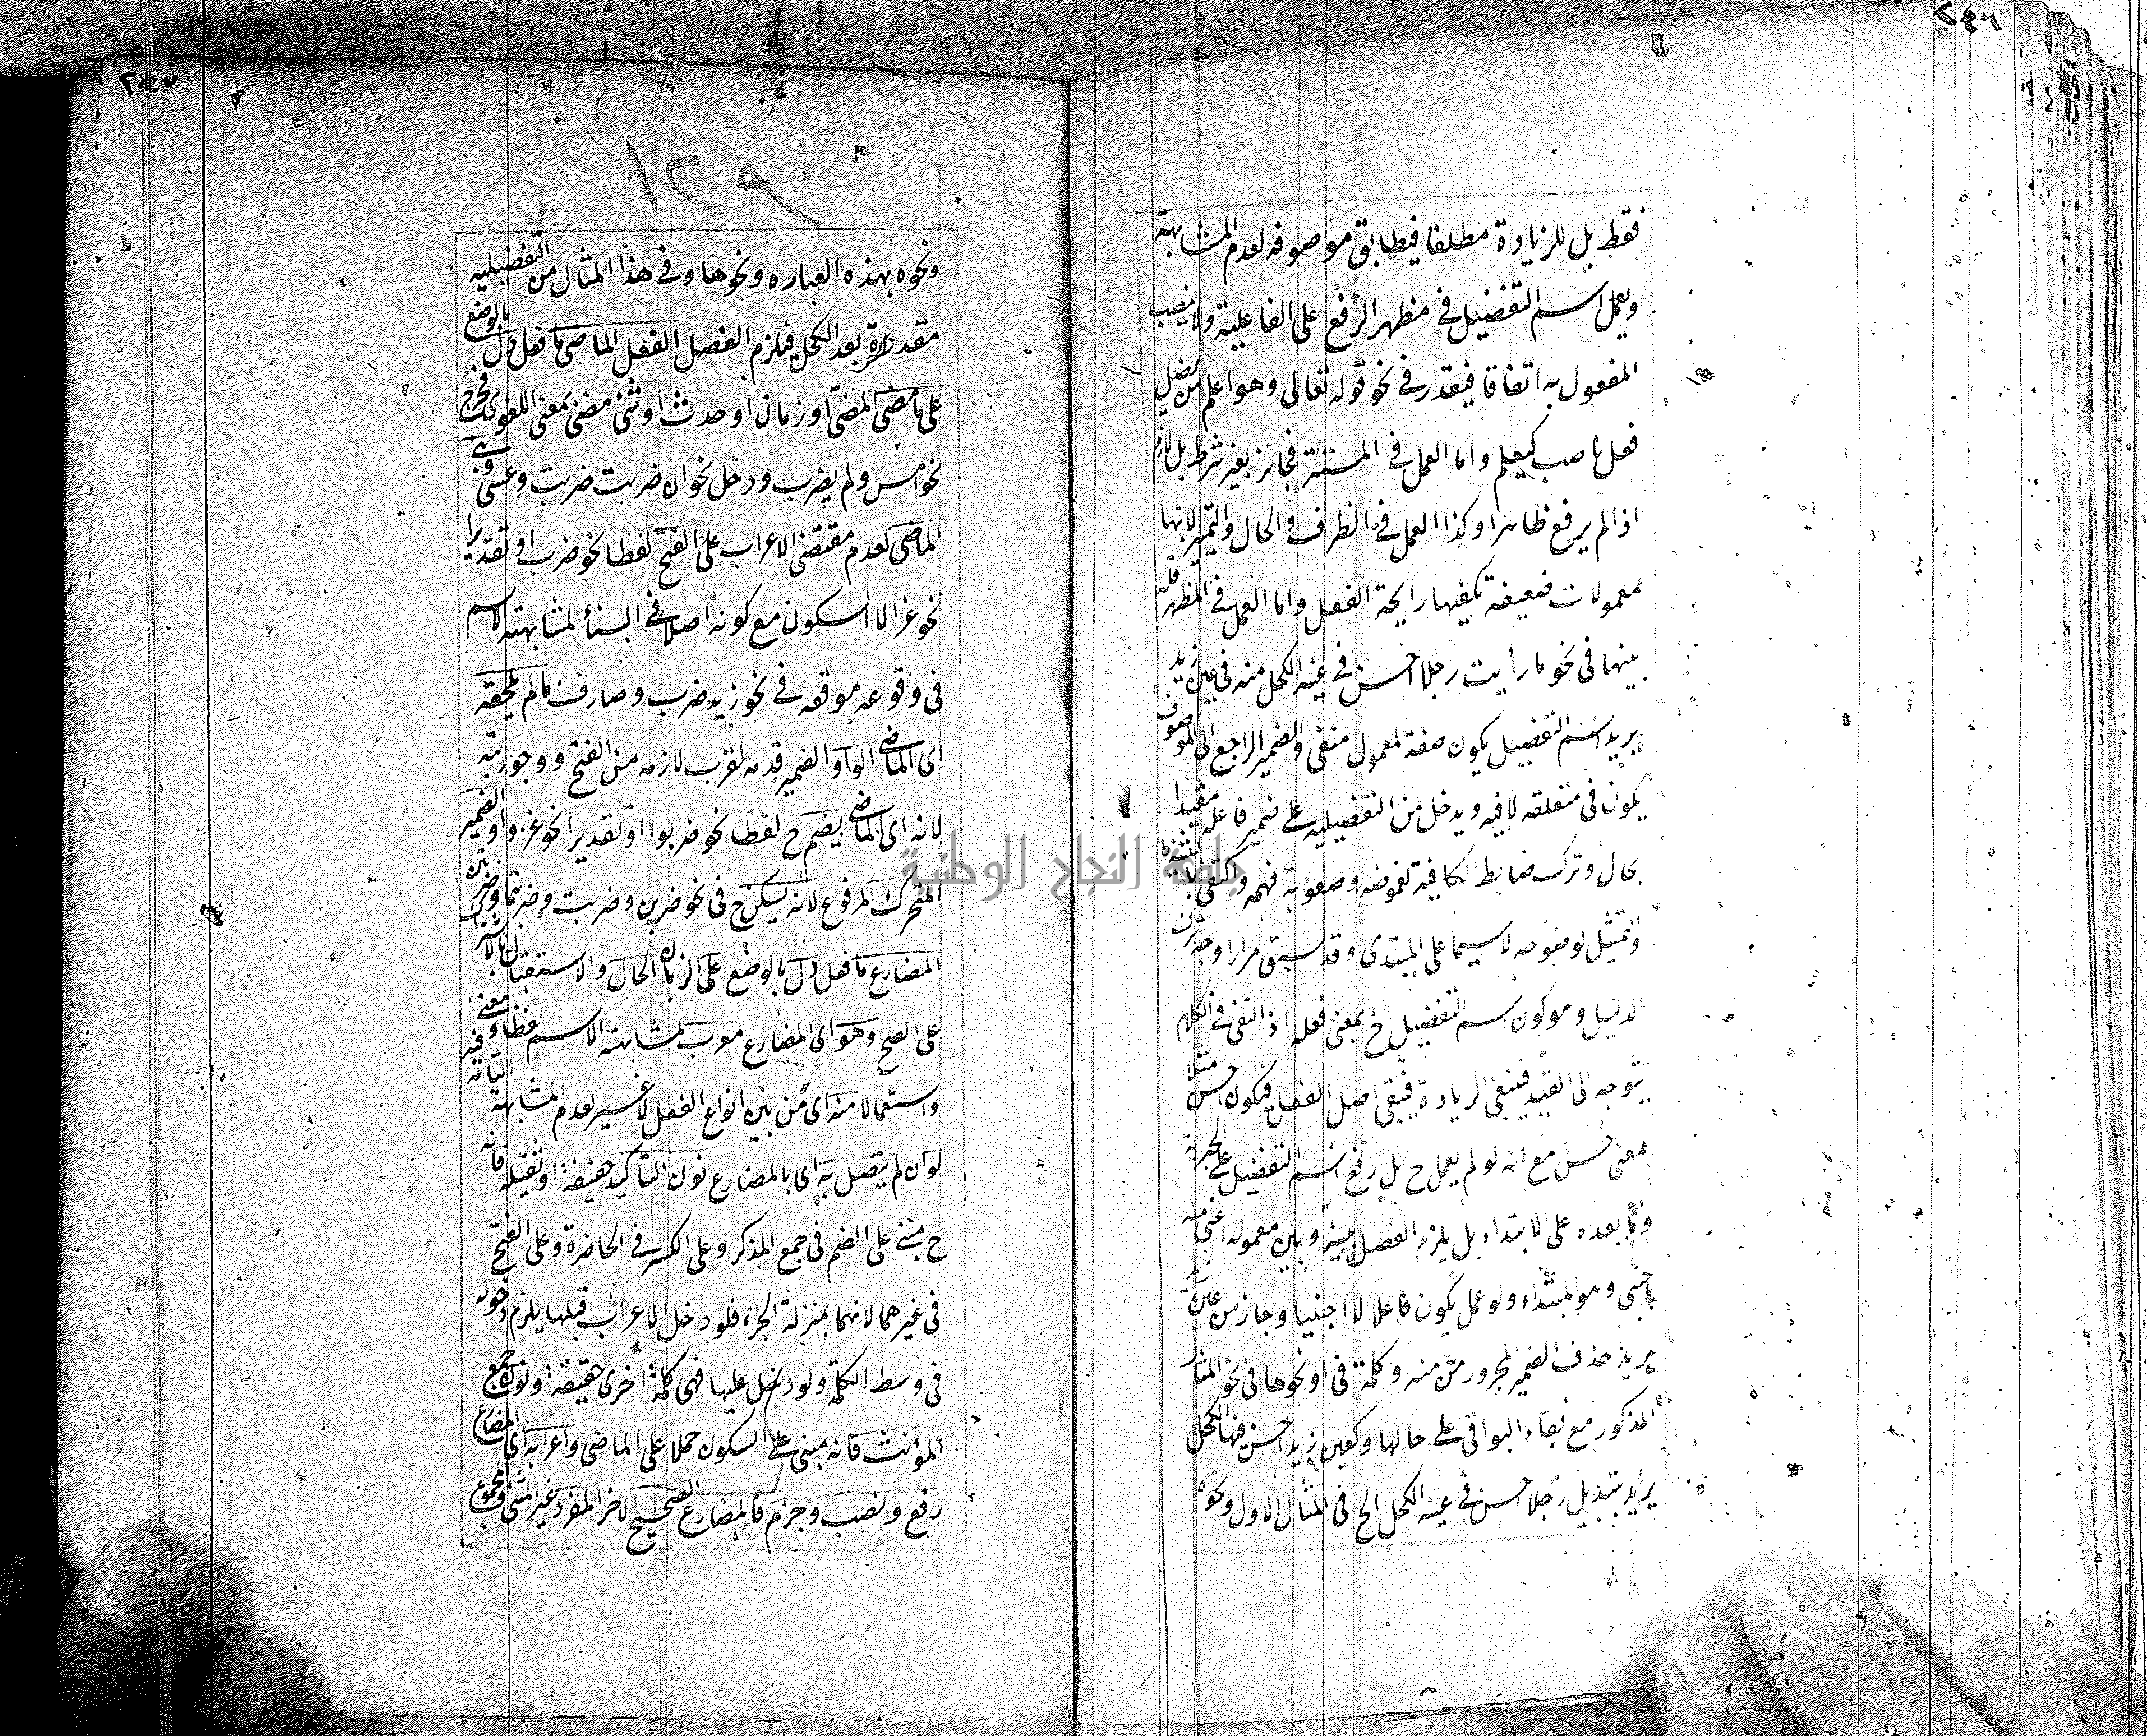 ٢٤٦
فقط بل للزيادة مطلقا فيطابق موصوفه لعدم المشابهة
ويعمل اسم التفضيل في مظهر الرفع على الفاعلية ولا ينصب
المفعول به اتفاقا فيقدر في نحو قوله تعالى وهو اعلم من يضل
فعل ناصب كيعلم واما العمل في المستتر فجائز بغير شرط بل لازم
اذا لم يرفع ظاهرا وكذا العمل في الظرف والحال والتميز لانها
معمولات ضعيفة تكفيها رايحة الفعل واما العمل في المظهر
بينهما في نحو ما رأيت رجلا احسن في عينه الكحل منه في عين زيد
يريد اسم التفضيل يكون صفة لمعمول منفي والضمير الراجع الى الموصوف
يكون في متعلقه لا فيه ويدخل من التفضيلية على ضمير فاعله مقيدا
بحال وترك ضابط الكافية لغموضه وصعوبة فهمه واكتفى
والتمثيل لوضوحه لا سيما على المبتدى وقد سبق مرارا وجه
الدليل وهو كون اسم التفضيل ح بمعنى فعله اذ النفى في الكلام
يتوجه الى القيد فينفى الزيادة فيبقى اصل الفعل فيكون احسن مثلا
بمعنى حسن مع انه لو لم يعمل ح بل رفع اسم التفضيل على الخبرية
وما بعده على الابتداء بل يلزم الفصل بينه وبين معموله اعنى منه
باجنبى وهو المبتداء ولو عمل يكون فاعلا لا اجنبيا وجاز من عين
يريد حذف الضمير المجرور من منه وكلمة في او نحوها في نحو المثال
المذكور مع بقاء البواقى على حالها وكعين زيد احسن فيها الكحل
يريد تبديل رجلا احسن في عينه الكحل الخ في المثال الاول ونحوه
٢٤٧
١٢٩
ونحوه بهذه العباره ونحوها وفي هذا المثال من التفضيلية
مقدرة بعد الكحل فيلزم الفصل الفعل الماضى ما فعل دل بالوضع
على ما مضى المضى او زمان او حدث او شئ مضى بمعنى اللغوى فخرج
نحو امس ولم يضرب ودخل نحو ان ضربت ضربت وعسى وبنى
الماضى لعدم مقتضى الاعراب على الفتح لفظا نحو ضرب او تقديرا
نحو غزا لا السكون مع كونه اصلا في البناء لمشابهته الاسم
في وقوعه موقعه في نحو زيد ضرب وضارب ما لم يلحقه
اى الماضى الواو الضمير قدمه لقرب لازمه من الفتح ووجوديته
لانه اى الماضى يضم ح لفظا نحو ضربوا او تقديرا نحو غزوا والضمير
المتحرك المرفوع لانه يسكن ح في نحو ضربن وضربت وضربتما وضربتن
المضارع ما فعل دل بالوضع على الزمان الحال والاستقبال بالاشتراك
على الصح وهو اى المضارع معرب لمشابهته الاسم لفظا ومعنى
واستعمالا منه اى من بين انواع الفعل لا غير لعدم المشابهة التامة فيه
لو ان لم يتصل به اى بالمضارع نون التأكيد خفيفة او ثقيلة فانه
ح مبنى على الضم في جمع المذكر وعلى الكسر في الحاضرة وعلى الفتح
في غيرهما لانهما بمنزلة الجزء فلو دخل الاعراب قبلها يلزم دخوله
في وسط الكلمة ولو دخل عليها فهى كلمة اخرى حقيقة او نون جمع
المؤنث فانه مبنى على السكون حملا على الماضى واعرابه اى المضارع
رفع ونصب وجزم فالمضارع الصحيح الاخر المفرد غير المثنى والمجموع
جامعة النجاح الوطنية